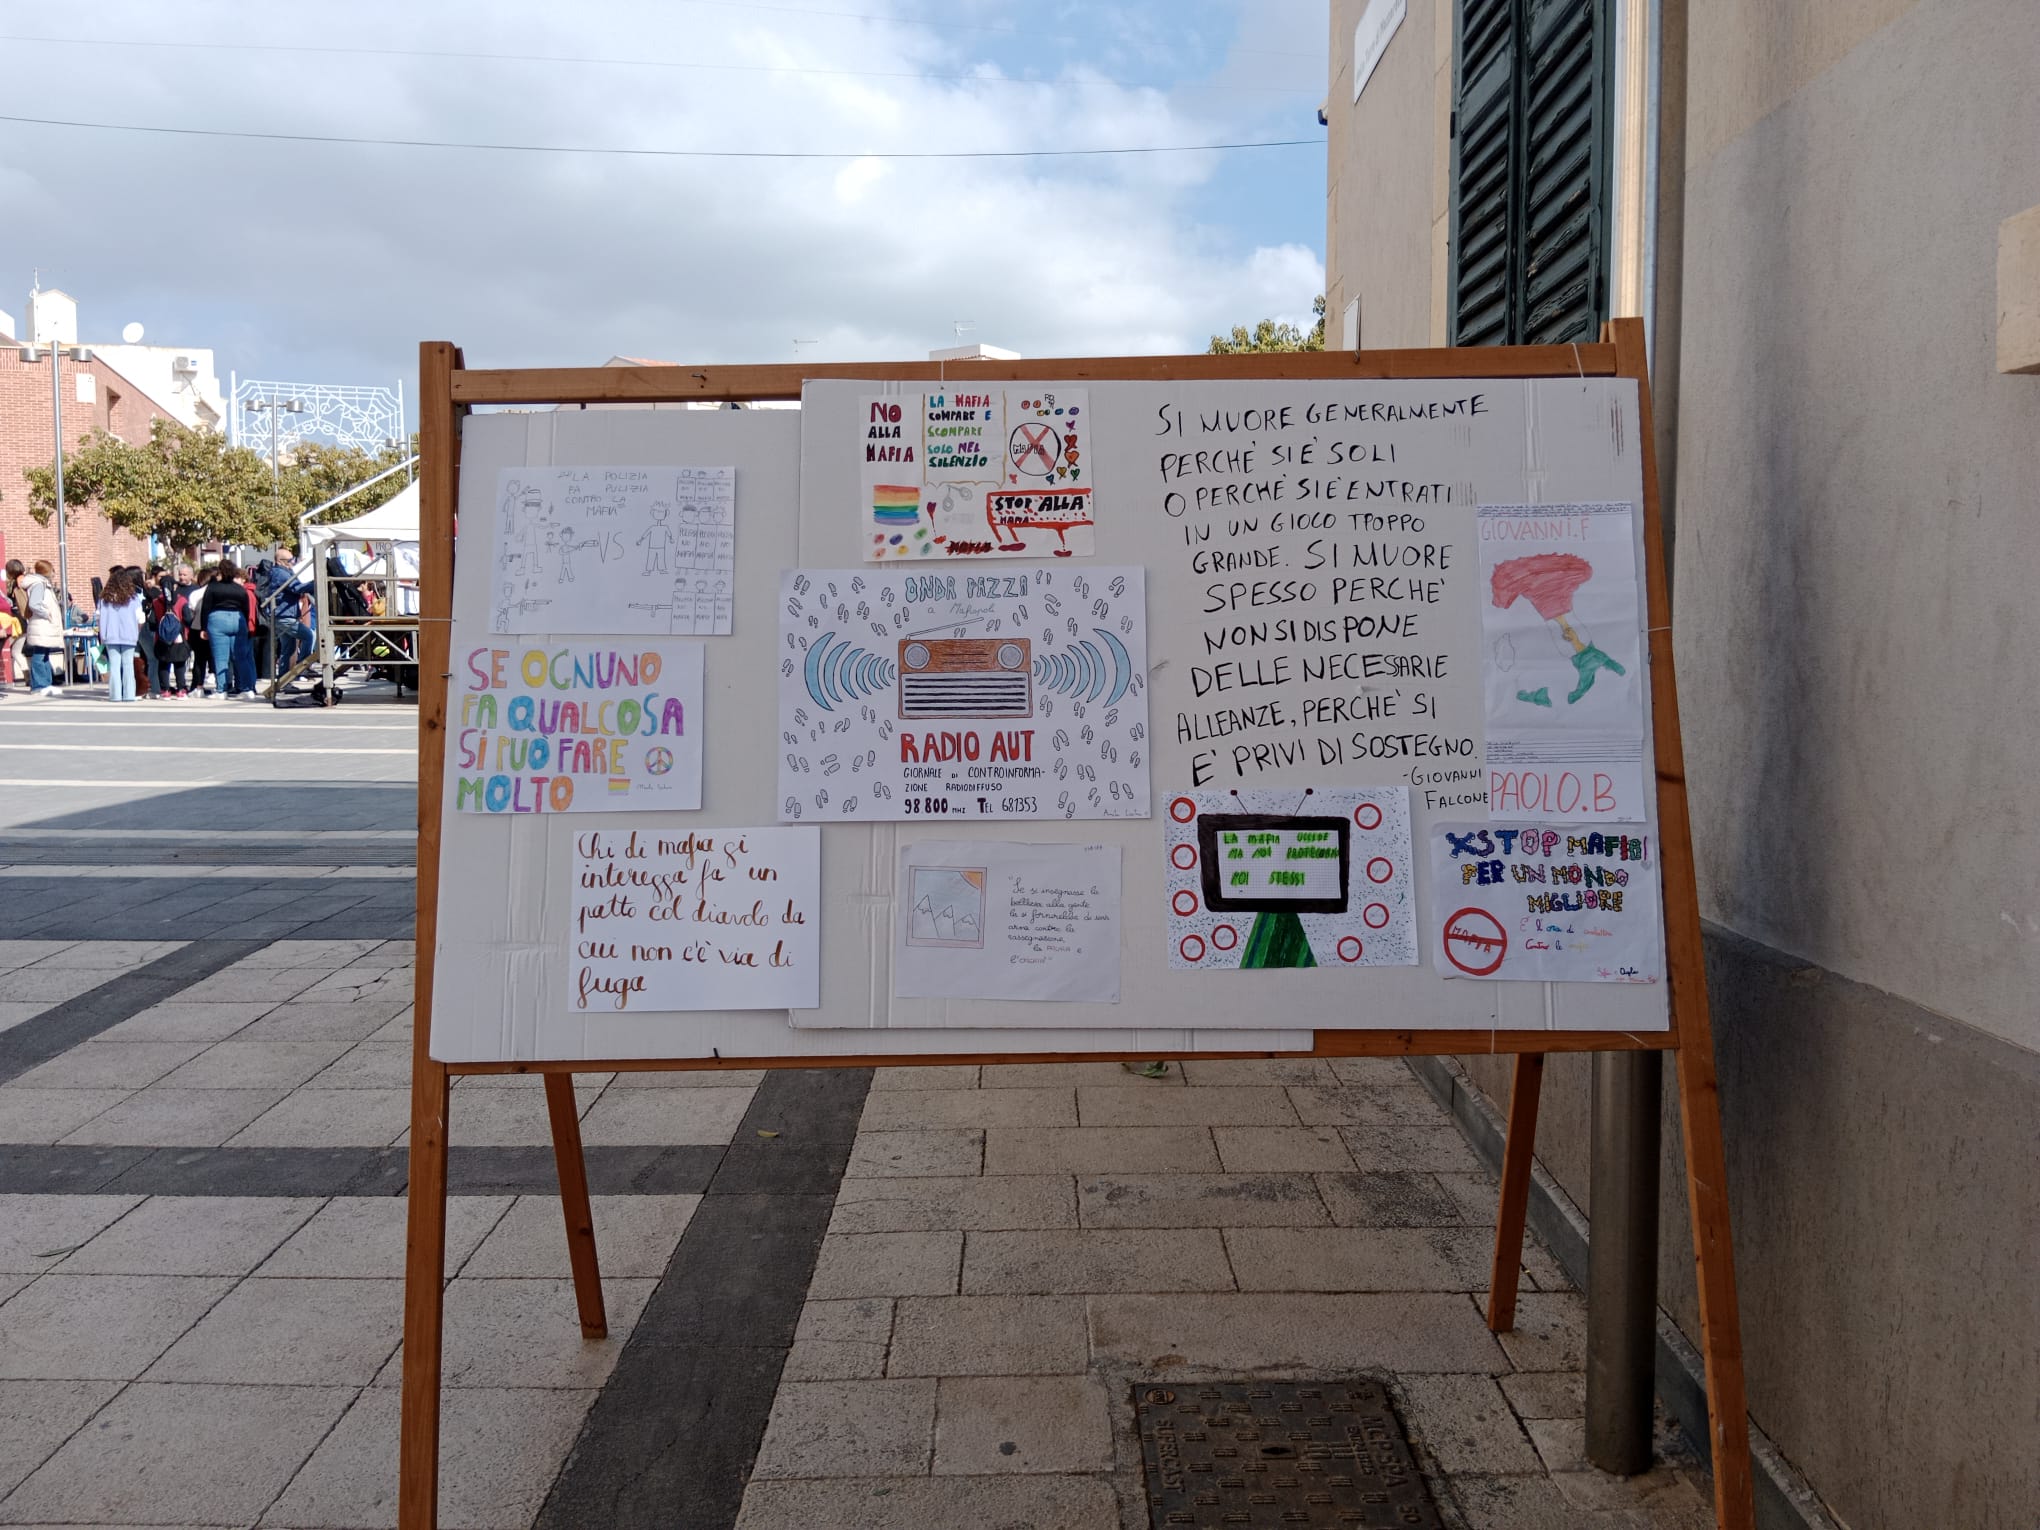 LA POLIZIA
FA PULIZIA
CONTRO LA
MAFIA
VS
NO
ALLA
MAFIA
LA MAFIA
COMPARE E
SCOMPARE
SOLO NEL
SILENZIO
MAFIA
STOP ALLA
MAFIA
MAFIA
SI MUORE GENERALMENTE
PERCHÈ SI È SOLI
O PERCHÈ SI È ENTRATI
IN UN GIOCO TROPPO
GRANDE. SI MUORE
SPESSO PERCHE'
NON SI DISPONE
DELLE NECESSARIE
ALLEANZE, PERCHE' SI
E' PRIVI DI SOSTEGNO.
-GIOVANNI
FALCONE
GIOVANNI.F
PAOLO.B
SE OGNUNO
FA QUALCOSA
SI PUÒ FARE
MOLTO
ONDA PAZZA
a Mafiopoli
RADIO AUT
GIORNALE DI CONTROINFORMA-
ZIONE RADIODIFFUSO
98.800 MHZ TEL 681353
Chi di mafia si
interessa fa un
patto col diavolo da
cui non c'è via di
fuga
"Se si insegnasse la
bellezza alla gente
la si fornirebbe di un'
arma contro la
rassegnazione,
la PAURA e
l'OMERTÀ"
LA MAFIA UCCIDE
MA NOI PROTEGGIAMO
NOI STESSI
XSTOP MAFIA!
PER UN MONDO
MIGLIORE
È l'ora di combattere
Contro la mafia
MAFIA